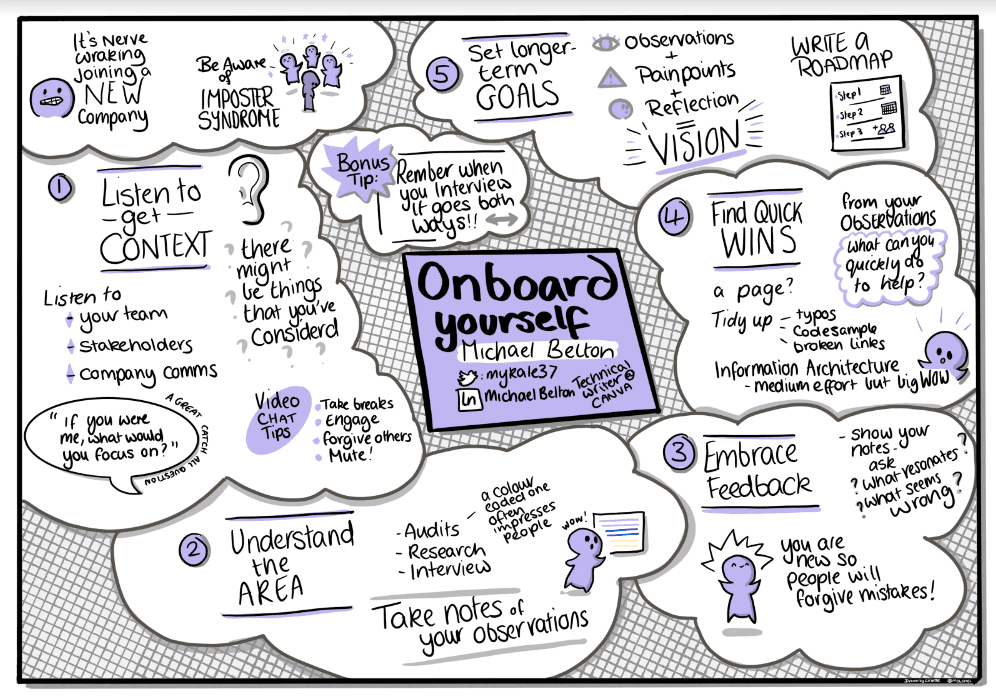 It's Nerve
wraking
joining a
NEW
Company
Be Aware
of
IMPOSTER
SYNDROME
Bonus
Tip:
Rember when
you Interview
it goes both
ways!!
Onboard
yourself
Michael Belton
: mykale37
in Michael Belton
Technical
writer @
CANVA
1
Listen to
- get -
CONTEXT
there
might
be things
that you've
Considerd
Listen to
your team
stakeholders
company comms
"if you were
me, what would
you focus on?"
A GREAT CATCH ALL QUESTION
Video
CHAT
Tips
Take breaks
Engage
forgive others
Mute!
2
Understand
the
AREA
- Audits
- Research
- Interview
a colour
coded one
often
impresses
people
wow!
Take notes of
your observations
3
Embrace
Feedback
- show your
notes -
ask
? what resonates?
? what seems
wrong?
you are
new so
people will
forgive mistakes!
4
Find QUICK
WINS
from your
OBSERVATIONS
what can you
quickly do
to help?
a page?
Tidy up - typos
- Codesample
- broken links
Information Architecture
- medium effort but big WOW
5
Set longer-
term
GOALS
Observations
+
Painpoints
+
Reflection
=
VISION
WRITE A
ROADMAP
Step 1
Step 2
Step 3 +